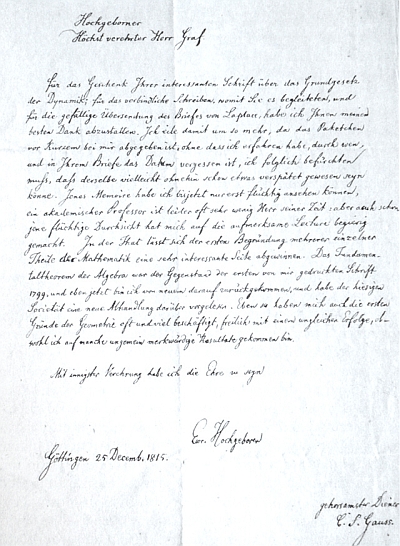 Hochgeborner
Höchst verehrter Herr Graf
Für das Geschenk Ihrer interessanten Schrift über das Grundgesetz
der Dynamik, für das verbindliche Schreiben, womit Sie es begleiteten, und
für die gefällige Übersendung des Briefes von Laplace, habe ich Ihnen meinen
besten Dank abzustatten. Ich eile damit um so mehr, da das Paketchen
vor Kurzem bei mir abgegeben ist, ohne dass ich erfahren habe, durch wen,
und in Ihrem Briefe das Datum vergessen ist, ich folglich befürchten
muss, dass derselbe vielleicht ohnehin schon etwas verspätet gewesen seyn
könne. Jenes Memoire habe ich bis jetzt nur erst flüchtig ansehen können,
ein akademischer Professor ist leider oft sehr wenig Herr seiner Zeit: aber auch schon
jene flüchtige Durchsicht hat mich auf die aufmerksame Lecture begierig
gemacht. In der That lässt sich der ersten Begründung mehrerer einzelner
Theile der Mathematik eine sehr interessante Seite abgewinnen. Das Fundamen-
taltheorem der Algebra war der Gegenstand der ersten von mir gedruckten Schrift
1799, und eben jetzt bin ich von neuem darauf zurückgekommen, und habe der hiesigen
Societät eine neue Abhandlung darüber vorgelesen. Eben so haben mich auch die ersten
Gründe der Geometrie oft und viel beschäftigt, freilich mit einem ungleichen Erfolge, ob-
wohl ich auf manche ungemein merkwürdige Resultate gekommen bin.
Mit innigster Verehrung habe ich die Ehre zu seyn
Ew. Hochgeboren
Göttingen 25 Decemb. 1815.
gehorsamster Diener
C. F. Gauss.